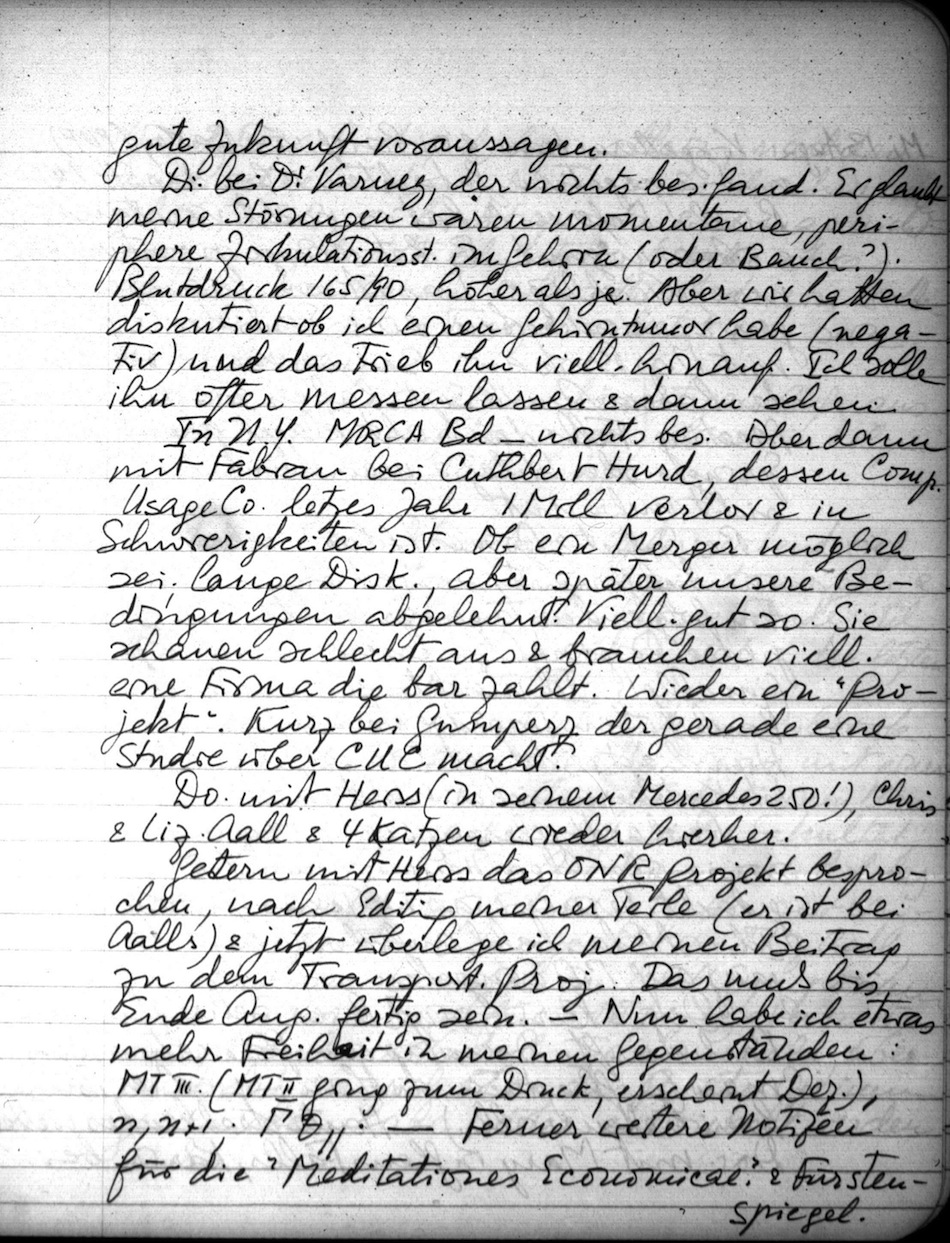 gute Zukunft voraussagen.
Di. bei Dr. Varney, der nichts bes. fand. Er glaubt
meine Störungen wären momentane, peri-
phere Zirkulationsst. im Gehirn (oder Bauch?).
Blutdruck 165/90, höher als je. Aber wir hatten
diskutiert ob ich einen Gehirntumor habe (nega-
tiv) und das trieb ihn viell. hinauf. Ich solle
ihn öfter messen lassen & dann sehen.
In N.Y. MRCA Bd – nichts bes. Aber dann
mit Fabian bei Cuthbert Hurd, dessen Comp.
Usage Co. letzes Jahr 1 Mill verlor & in
Schwierigkeiten ist. Ob ein Merger möglich
sei. Lange Disk., aber später unsere Be-
dingungen abgelehnt. Viell. gut so. Sie
schauen schlecht aus & brauchen viell.
eine Firma die bar zahlt. Wieder ein "Pro-
jekt". Kurz bei Gumperz der gerade eine
Studie über CUC macht.
Do. mit Heiss (in seinem Mercedes 250!), Chris
& Liz. Aall & 4 Katzen wieder hierher.
Gestern mit Heiss das ONR Projekt bespro-
chen, nach Editig meiner Teile (er ist bei
Aalls) & jetzt überlege ich meinen Beitrag
zu dem Transport. Proj. Das muß bis
Ende Aug. fertig sein. – Nun habe ich etwas
mehr Freiheit in meinen Gegenständen:
MT III. (MT II ging zum Druck, erscheint Dez.),
n, n+1, Γ — Ferner weitere Notizen
für die "Meditationes Economicae" & Fürsten-
spiegel.